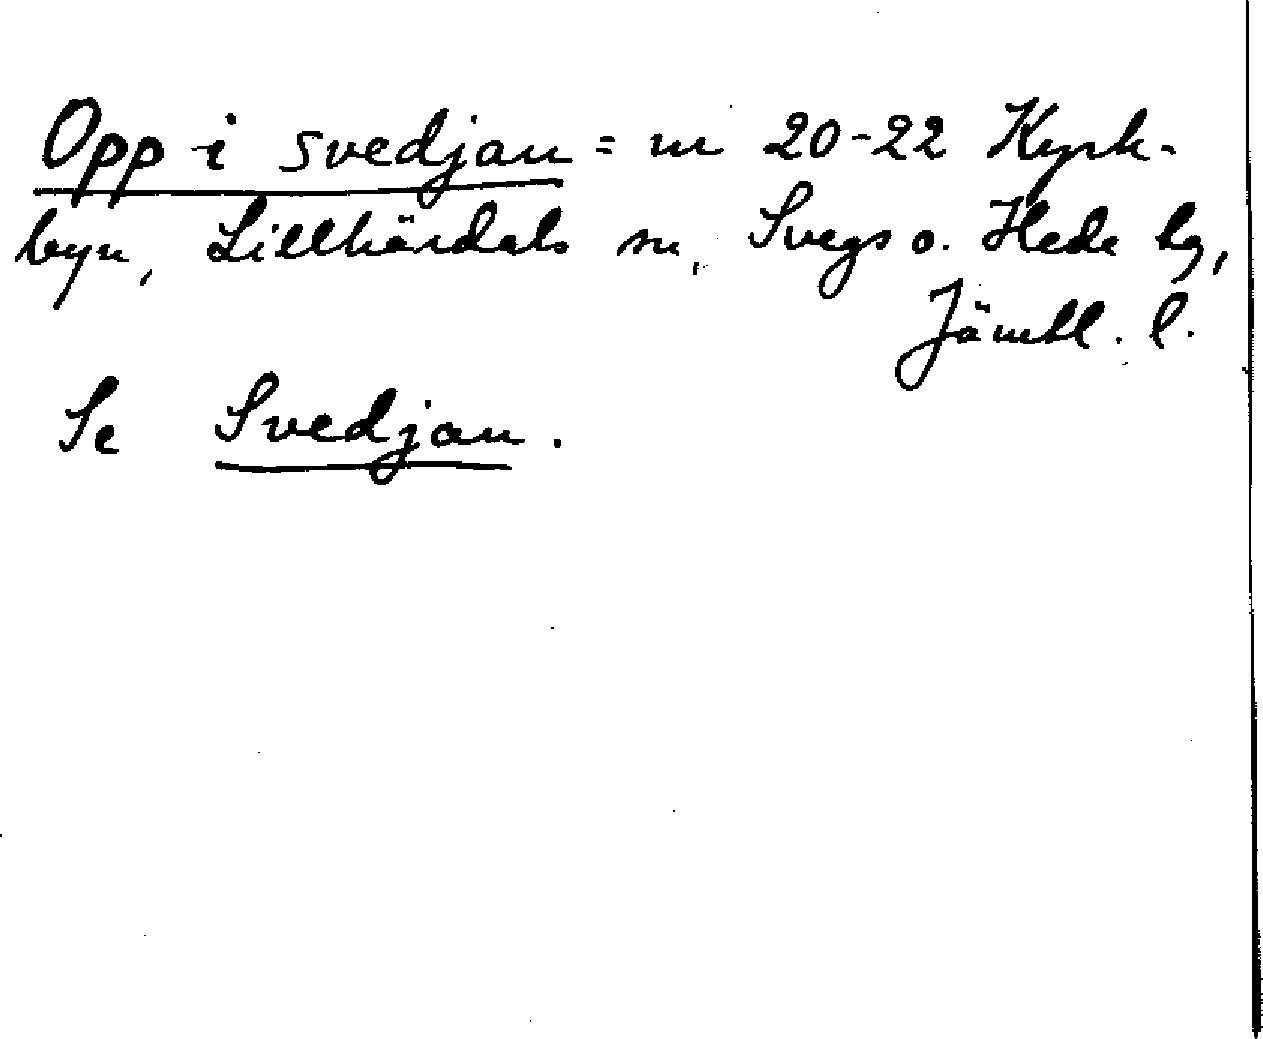 Opp i svedjan = m 20-22 Kyrk-
byn, Lillhärdals sn, Svegs o. Hede hg,
Jämtl. l.
Se Svedjan.